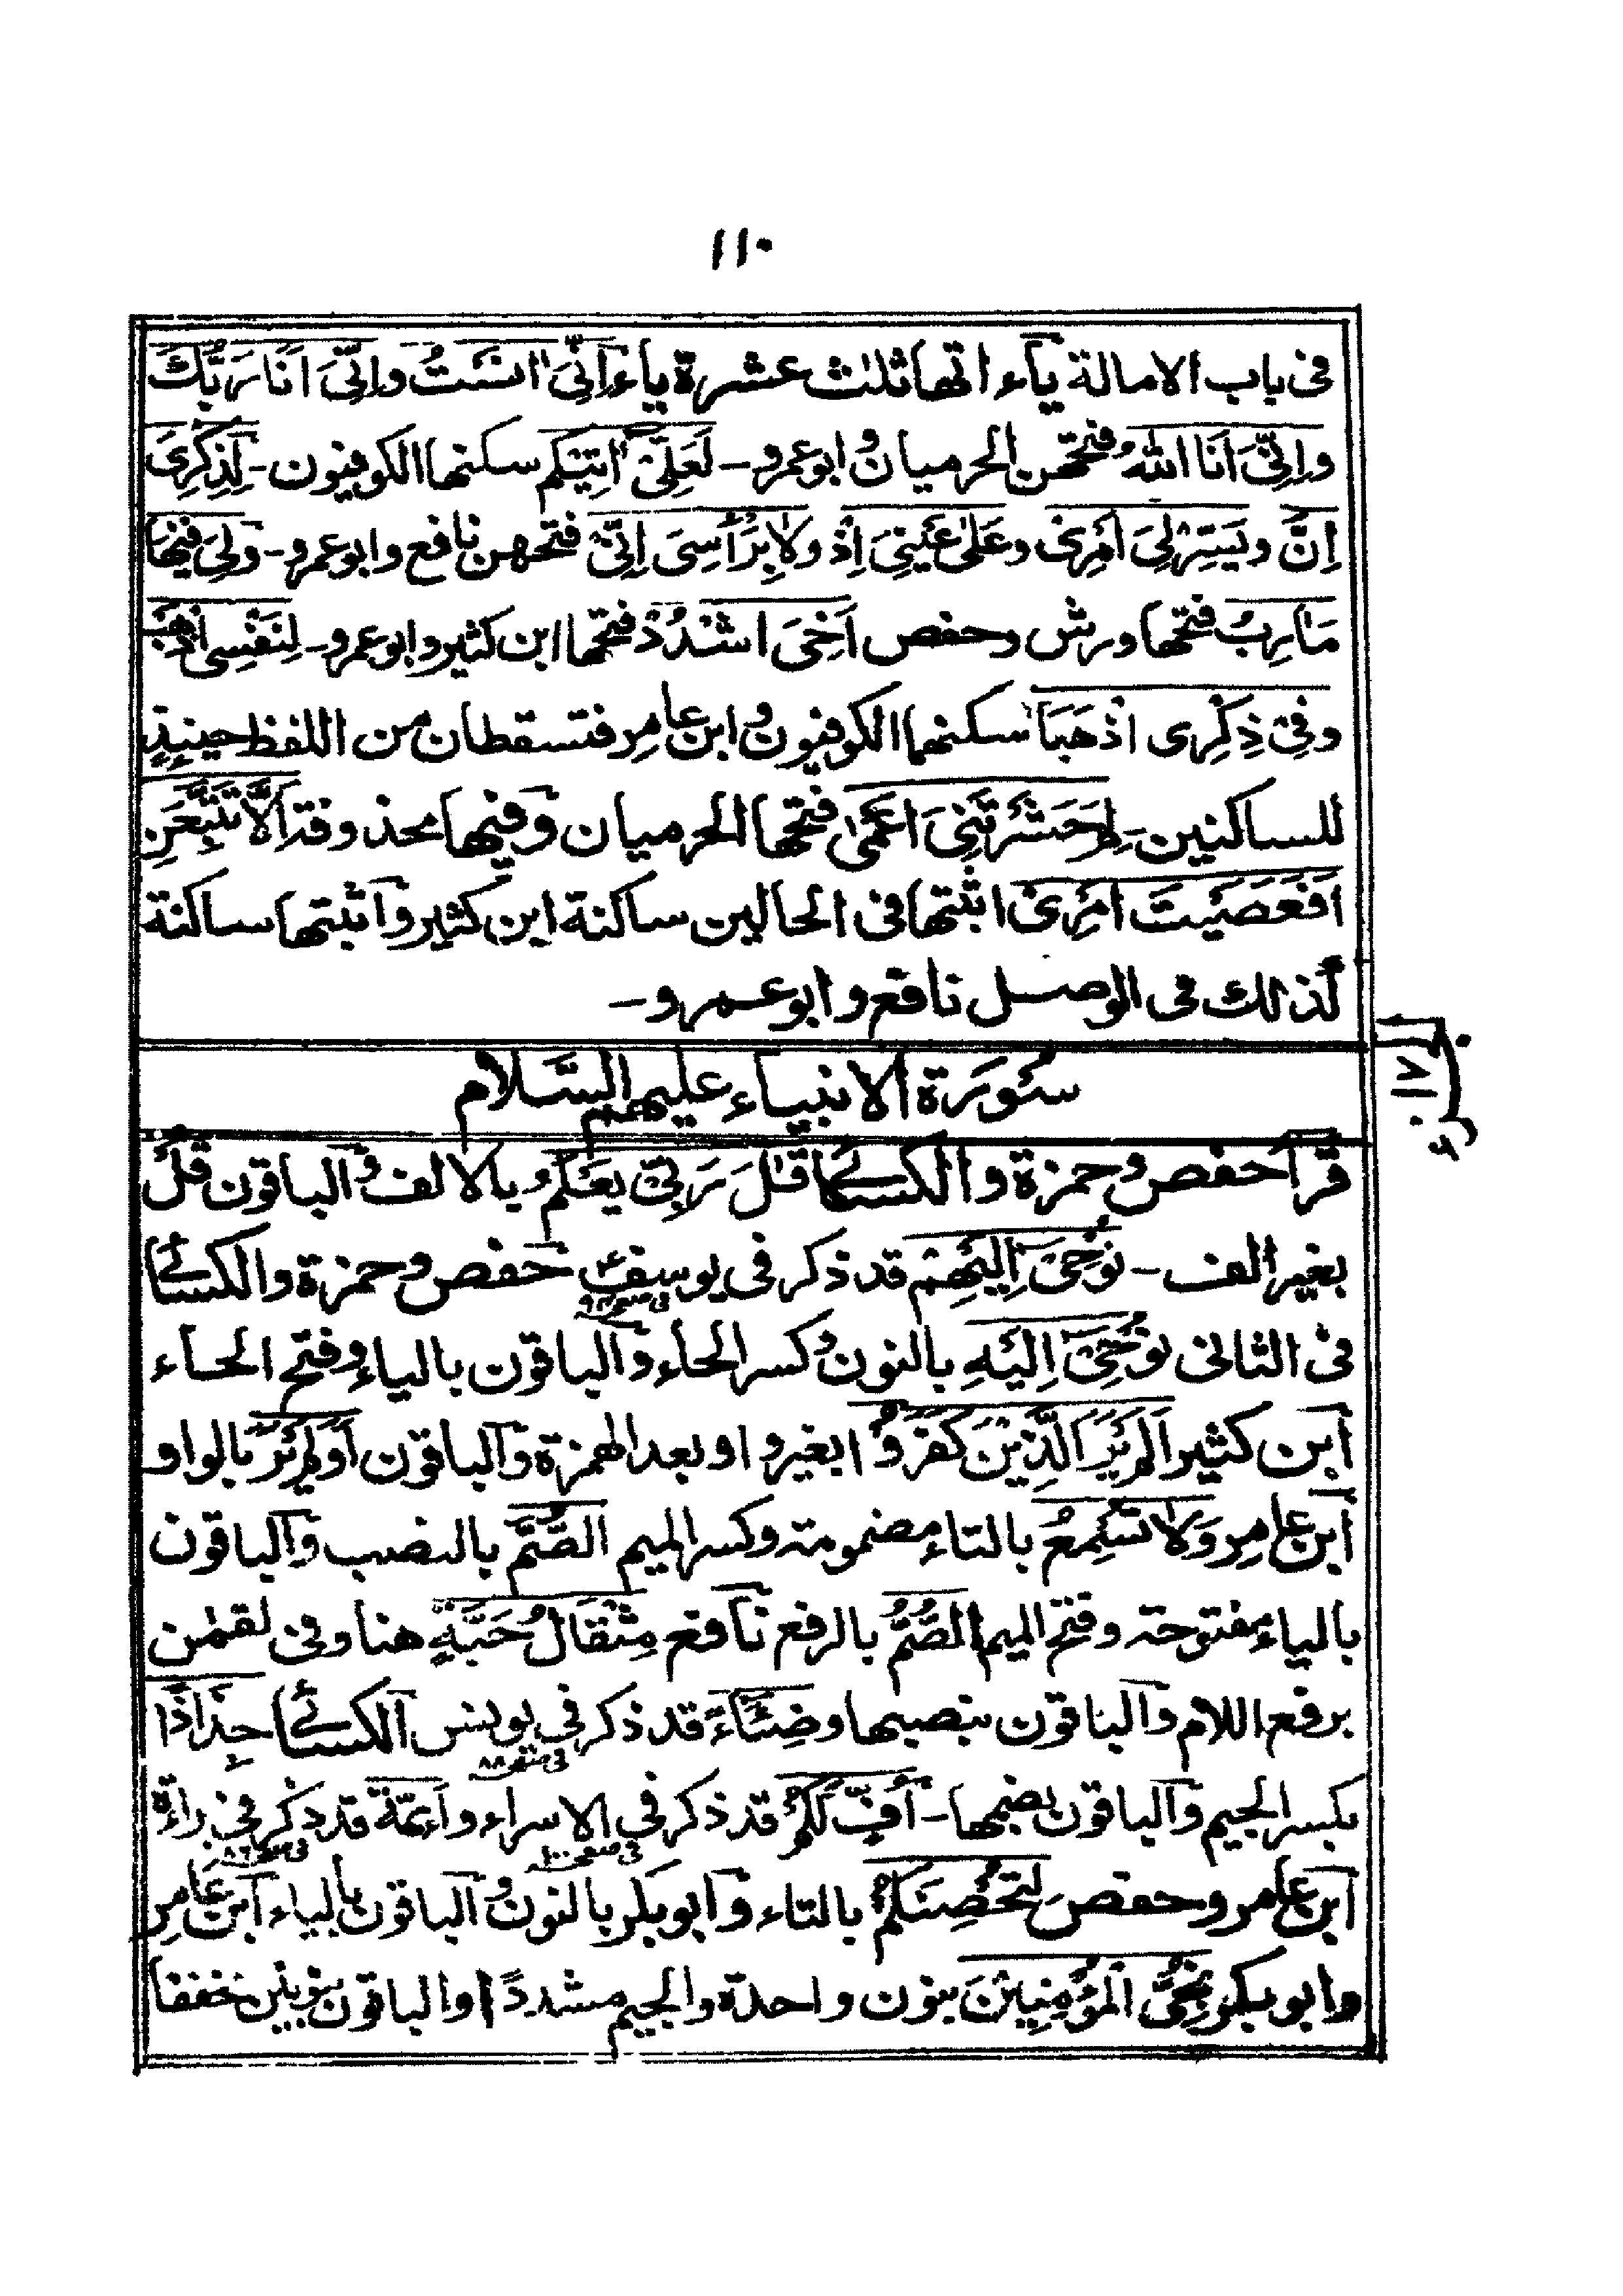 ١١٠
فى باب الامالة ياء اتها ثلث عشرة ياء اِنِّىَ اٰنَسْتُ وانِّىَ اَنَا رَبُّكَ
واِنَّنِىَ اَنَا اللّٰهُ فتحهن الحرميان وابو عمرو - لَعَلِّىْ اٰتِيْكم سكنها الكوفيون - لِذِكْرِىَ
اِنَّ ويَسِّرْ لِىَ اَمْرِى وعَلٰى عَيْنِىَ اِذْ ولا بِرَاْسِىَ اِنِّىْ فتحهن نافع وابو عمرو - ولِىَ فِيْهَا
مَاٰرِبُ فتحها ورش وحفص اَخِىَ اشْدُدْ فتحها ابن كثير وابو عمرو - لِنَفْسِى اذْهَبْ
وفِىْ ذِكْرِى اذْهَبَا سكنهما الكوفيون وابن عامر فتسقطان من اللفظ حينئذٍ
للساكنين - لِمَ حَشَرْتَنِىَ اَعْمٰى فتحها الحرميان وفيها محذوفة اَلَّا تَتَّبِعَنِ
اَفَعَصَيْتَ اَمْرِىْ اثبتها فى الحالين ساكنة ابن كثير واثبتها ساكنة
كذلك فى الوصل نافع وابو عمرو -
سُوْرَة الانبياء عليهم السّلام
قرأ حفص وحمزة والكسائى قٰلَ رَبِّىْ يعْلَم وبالالف والباقون قُلْ
بغير الف - نُوْحِىْ اِلَيْهِمْ قد ذكر فى يوسف حفص وحمزة والكسائى
فى صفحه ٩٢
فى الثانى نُوْحِىْ اِلَيْهِ بالنون وكسر الحاء والباقون بالياء وفتح الحاء
ابن كثير اَلَمْ يَرَ الَّذِيْنَ كَفَرُوْا بغير واو بعد الهمزة والباقون اَوَلَمْ يَرَ بالواو
ابن عامر وَلَا تُسْمِعُ بالتاء مضمومة وكسر الميم الصُّمَّ بالنصب والباقون
بالياء مفتوحة وفتح الميم الصُّمُّ بالرفع نافع مِثْقَالُ حَبَّةٍ هنا وفى لقمٰن
برفع اللام والباقون بنصبها وضِيَآءً قد ذكر فى يونس الكسائى جِذَاذًا
فى صفحه ٨٨
بكسر الجيم والباقون بضمها - اُفٍّ لَّكُمْ قد ذكر فى الاسراء واَئِمَّةً قد ذكر فى براءة
فى صفحه ١٠٠ فى صفحه ٨٦
ابن عامر وحفص لِتُحْصِنَكُمْ بالتاء وابو بكر بالنون والباقون بالياء ابن عامر
وابو بكر نُجِّى الْمُؤْمِنِيْنَ بنون واحدة والجيم مشددًا والباقون بنونين مخففا